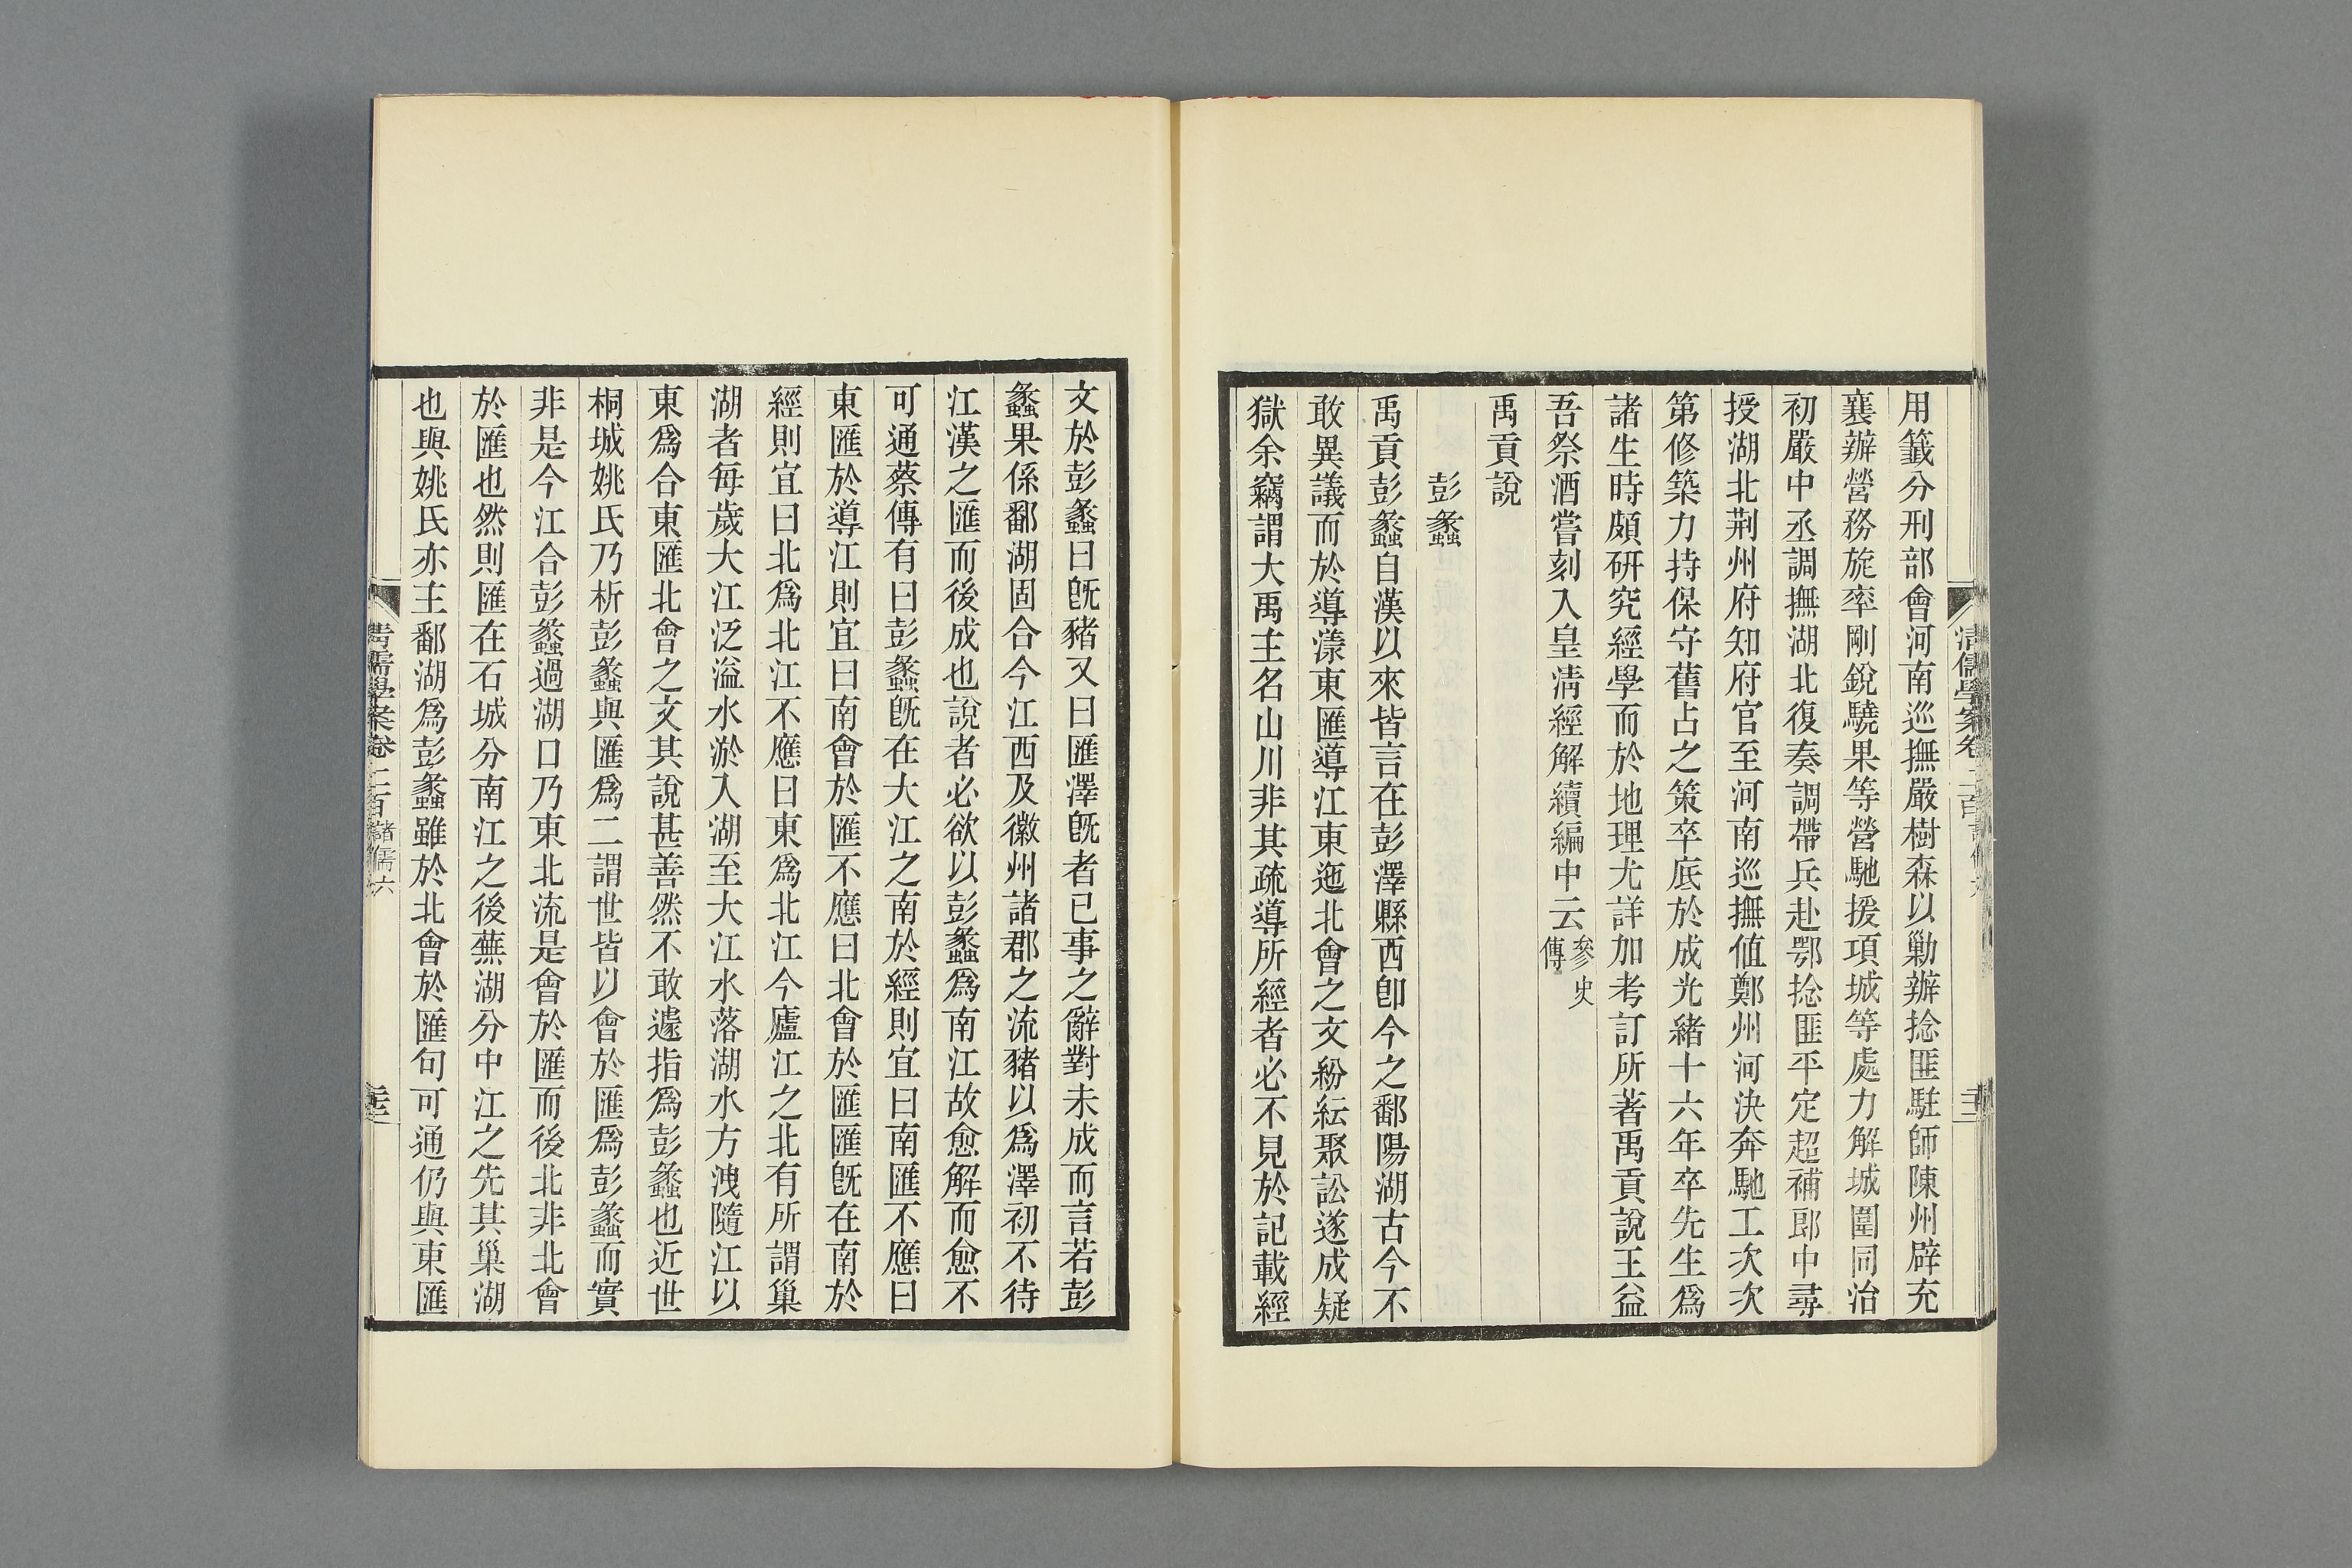 用籤分刑部會河南巡撫嚴樹森以勦辦捻匪駐師陳州辟充
襄辦營務旋率剛銳驍果等營馳援項城等處力解城圍同治
初嚴中丞調撫湖北復奏調帶兵赴鄂捻匪平定超補郎中尋
授湖北荆州府知府官至河南巡撫値鄭州河決奔馳工次次
第修築力持保守舊占之策卒底於成光緒十六年卒先生爲
諸生時頗研究經學而於地理尤詳加考訂所著禹貢說王益
吾祭酒嘗刻入皇淸經解續編中云參史傳
禹貢說
彭蠡
禹貢彭蠡自漢以來皆言在彭澤縣西卽今之鄱陽湖古今不
敢異議而於導漾東匯導江東迆北會之文紛紜聚訟遂成疑
獄余竊謂大禹主名山川非其疏導所經者必不見於記載經
文於彭蠡曰旣豬又曰匯澤旣者已事之辭對未成而言若彭
蠡果係鄱湖固合今江西及徽州諸郡之流豬以爲澤初不待
江漢之匯而後成也說者必欲以彭蠡爲南江故愈解而愈不
可通蔡傳有曰彭蠡旣在大江之南於經則宜曰南匯不應曰
東匯於導江則宜曰南會於匯不應曰北會於匯匯旣在南於
經則宜曰北爲北江不應曰東爲北江今廬江之北有所謂巢
湖者每歲大江泛溢水淤入湖至大江水落湖水方洩隨江以
東爲合東匯北會之文其說甚善然不敢遽指爲彭蠡也近世
桐城姚氏乃析彭蠡與匯爲二謂世皆以會於匯爲彭蠡而實
非是今江合彭蠡過湖口乃東北流是會於匯而後北非北會
於匯也然則匯在石城分南江之後蕪湖分中江之先其巢湖
也與姚氏亦主鄱湖爲彭蠡雖於北會於匯句可通仍與東匯
淸儒學案卷二百 諸儒六